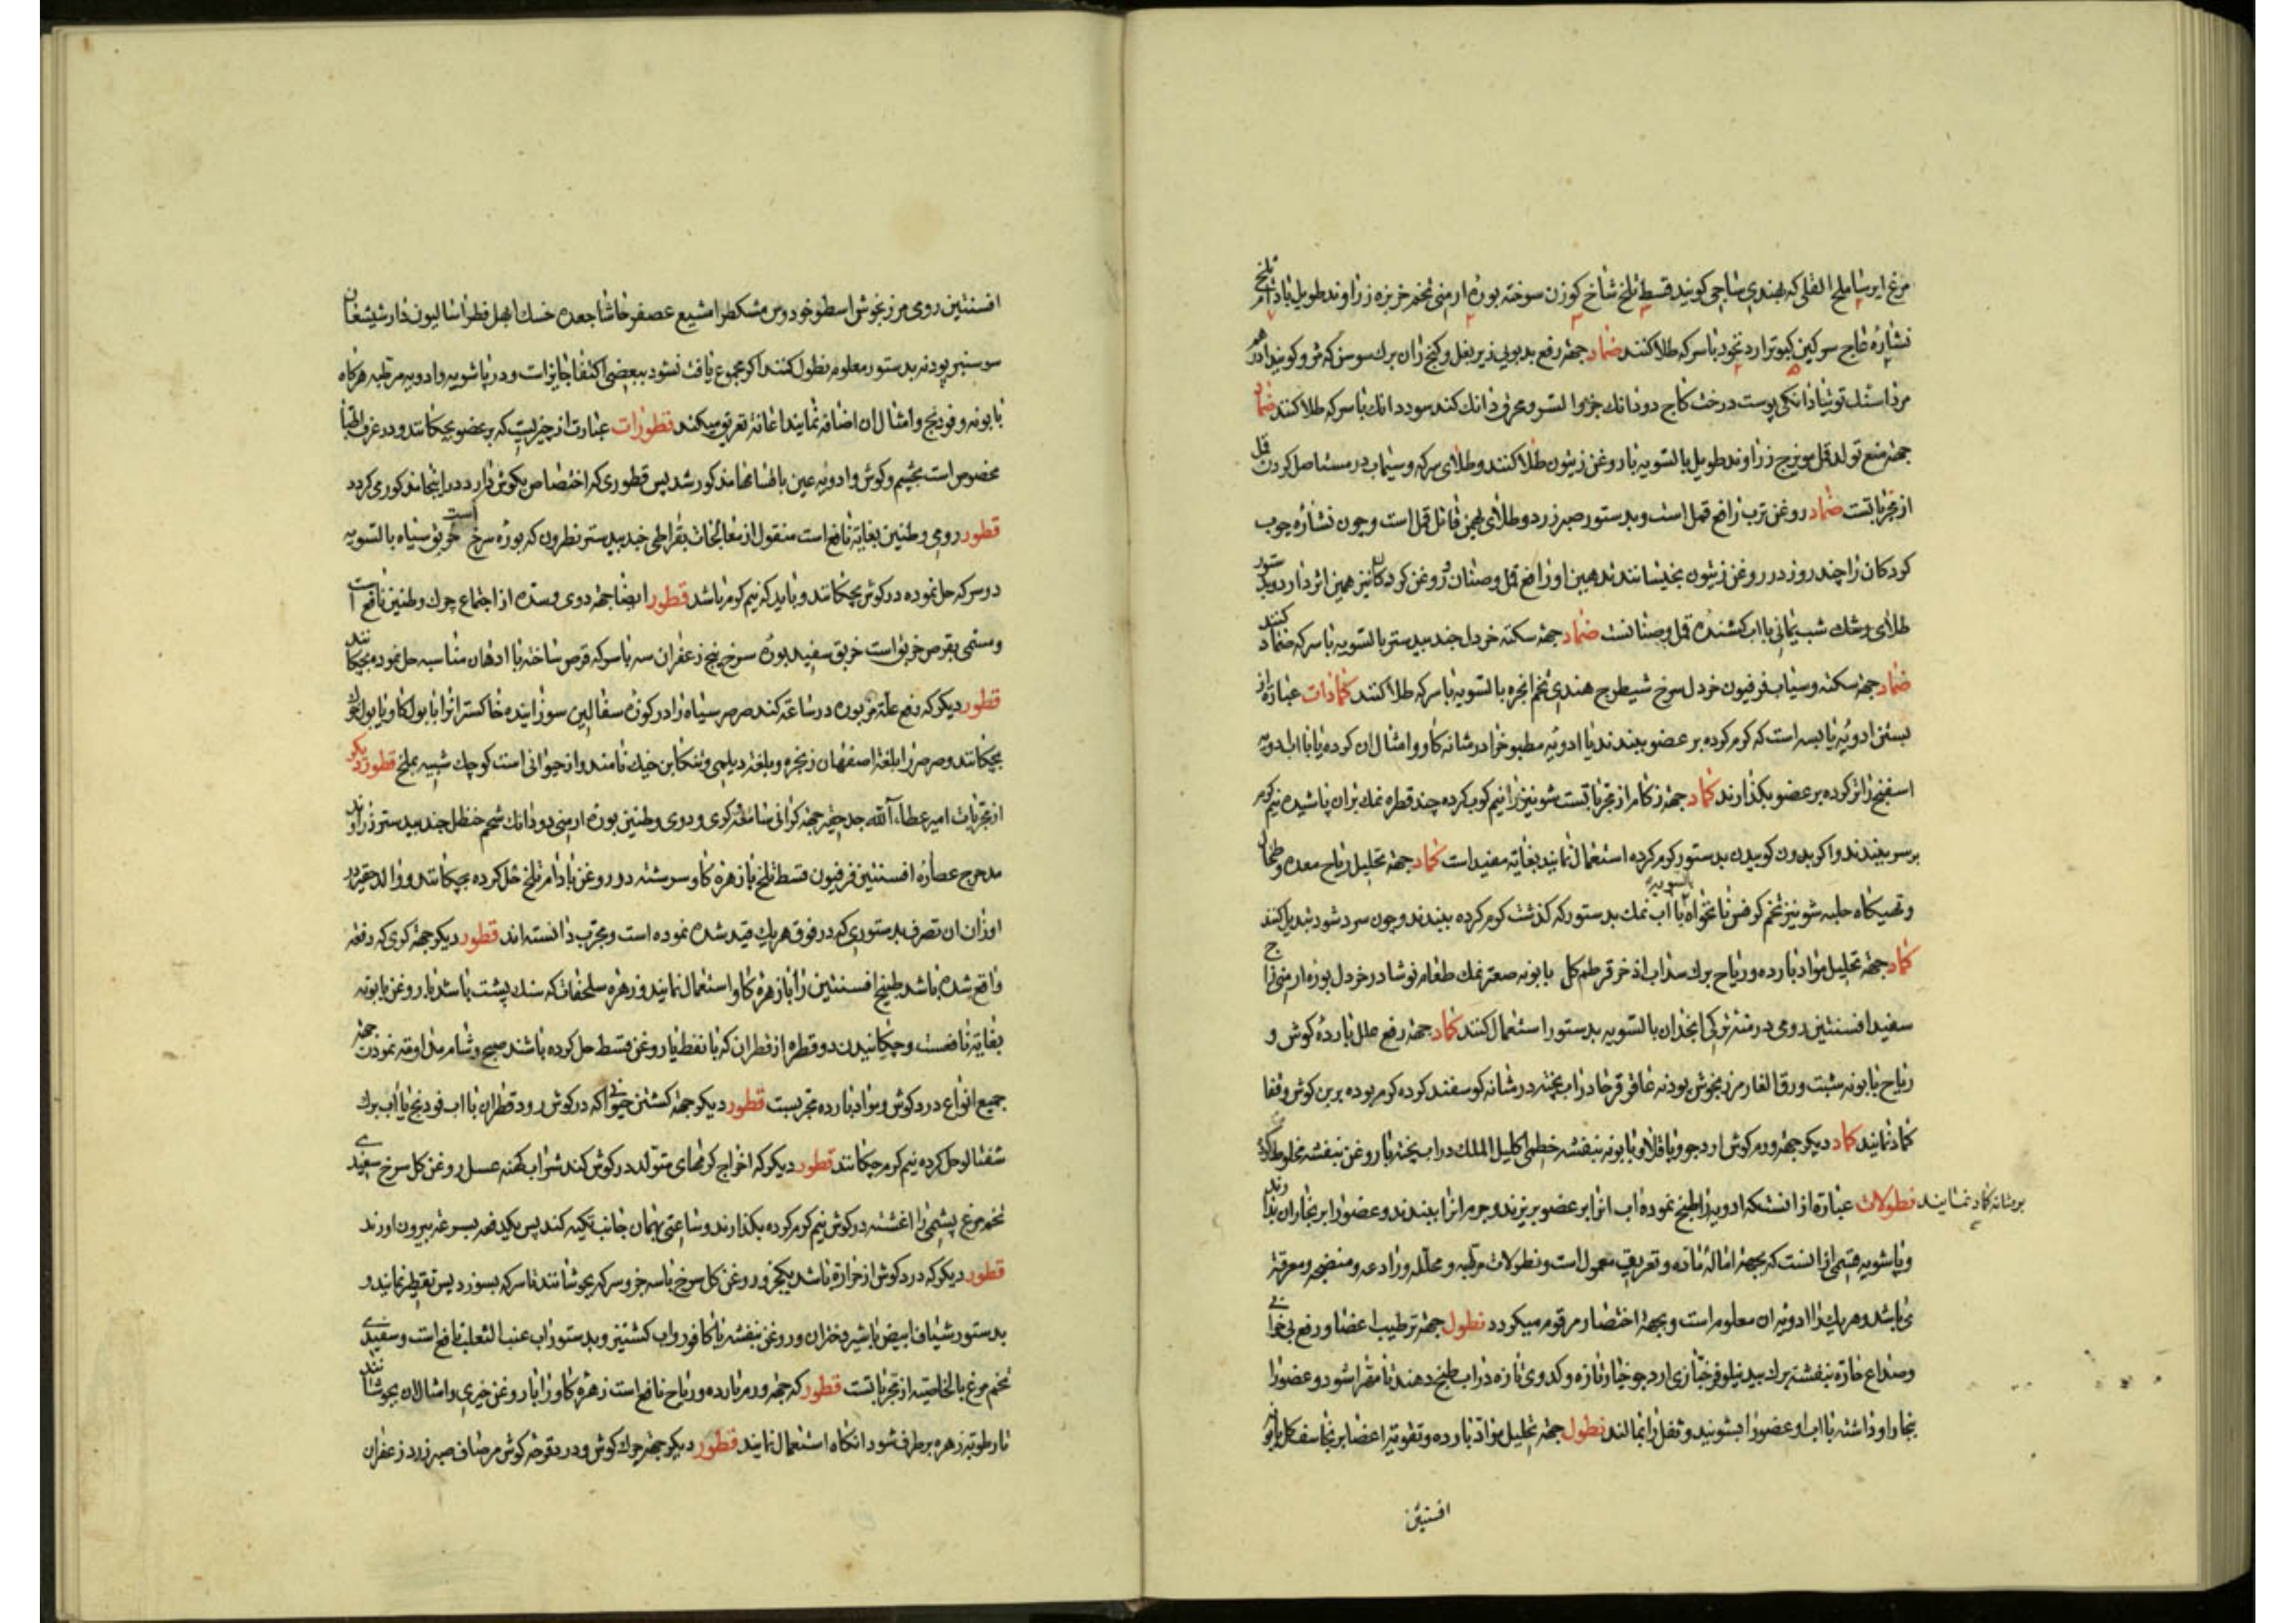 مرغ ایرسا ملح القلی که بهندی ساجی کویند قسط تلخ شاخ کوزن سوخته بوره ارمنی تخم خربزه زراوند طویل بادام تلخ
نشاره عاج سرکین کبوتر ارد نخود با سرکه طلا کنند ضماد جهة رفع بدبویی زیر بغل و کنج ران برک سوسن که
مرداسنک توتیا دانکی پوست درخت کاج دو دانک با سرکه طلا کنند ضماد
جهة منع تولد قمل مویزج زراوند طویل بالسویه با روغن زیتون طلا کنند و طلای سرکه و سیماب در مستاصل کردن قمل
از مجرباتست ضماد روغن ترب رافع قمل است و بدستور صبر زرد و طلای بهمن قاتل قمل است و چون نشاره چوب
کودکان را چند روز در روغن زیتون بخیسانند تدهین او رافع قمل و صئبان و روغن کودکان نیز همین اثر دارد و بدستور
طلای رشک شب یمانی با اب کشنده قمل و صئبانست ضماد جهة سکته خردل جندبیدستر بالسویه با سرکه ضماد کنند
ضماد جهة سکته و سبات فرفیون خردل سرخ شیطرج هندی تخم انجره بالسویه با سرکه طلا کنند کمادات عبارة از
بستن ادویه یابسه است که کرم کرده بر عضو ببندند یا ادویه مطبوخ را در مثانه کاو و امثال ان کرده یا با اب ادویه
اسفنج را تر کرده بر عضو بکذارند کماد جهة زکام از مجرباتست شونیز را نیم کوب کرده چند قطره نمک بران پاشیده نیم کرم
بر سر ببندند و اکر بدون کوبیدن بدستور کرم کرده استعمال نمایند بغایة مفید است کماد جهة تحلیل ریاح معده و طحال
و تهیکاه حلبه شونیز تخم کرفس نانخواه بالسویه با اب نمک بدستور که کذشت کرم کرده ببندند و چون سرد شود تبدیل کنند
کماد جهة تحلیل مواد بارده و ریاح برک سداب اذخر قرطم کل بابونه صعتر نمک طعام نوشادر خردل بوره ارمنی زاج
سفید افسنتین رومی درمنه ترکی انجدان بالسویه بدستور استعمال کنند کماد جهة رفع علل بارده کوش و
ریاح بابونه شبت ورق الغار مرزنجوش پودنه عاقرقرحا در اب پخته در مثانه کوسفند کرده کرم بوده بربن کوش و قفا
کماد نمایند کماد دیکر جهة ورم کوش ارد جو و باقلا و بابونه بنفشه خطمی اکلیل الملک در اب پخته با روغن بنفشه مخلوط کرده
بر مثانه کماد نمایند نطولات عبارة از انستکه ادویه را طبخ نموده اب انرا بر عضو بریزند و جرم انرا ببندند و عضو را بر بخار ان بدارند
و پاشویه قسمی از انست که بجهة امالهٔ ماده و تعریق معمول است و نطولات مرکبه و محلله و رادعه و منضجه و معرقه
می باشد و هر یک را ادویه ان معلوم است و بجهة اختصار مرقوم میکردد نطول جهة ترطیب اعضا و رفع بی خوابی
و صداع حاره بنفشه برک بید نیلوفر خبازی ارد جو خیار تازه و کدوی تازه در اب طبخ دهند تا مهرا شود و عضو را
بخار او داشته با اب او عضو را بشویند و ثفل را بمالند نطول جهة تحلیل مواد بارده و تقویة اعضا برنجاسف کل بابونه
افسنتین
افسنتین رومی مرزنجوش اسطوخودوس مشکطرامشیع عصفر حاشا جعده خسک ابهل فطراسالیون دارشیشعان
سوسنبر پودنه بدستور معلومه نطول کنند و اکر مجموع یافت نشود ببعضی اکتفا جایز است و در پاشویه و ادویه مرتبه هرکاه
بابونه و فودنج و امثال ان اضافه نمایند اعانة تعریق میکند قطورات عبارت از چیزیست که بر عضو بچکانند و در عرف اطبا
مخصوص است بچشم و کوش و ادویه عین بالتمامها مذکور شد پس قطوری که اختصاص بکوش دارد در اینجا مذکور می کردد
قطور دوی و طنین بغایة نافع است منقول از معالجات بقراطی جندبیدستر نطرون که بوره سرخ است خربق سیاه بالسویه
در سرکه حل نموده در کوش بچکانند و باید که نیم کرم باشد قطور ایضا جهة دوی و سده از اجتماع چرک و طنین نافع است
و مسمی بقرص خربق است خربق سفید بوره سرخ پنج زعفران سه با سرکه قرص ساخته با ادهان مناسبه حل نموده بچکانند
قطور دیکر که رفع علة مزبوره در ساعة کند صرصر سیاه را در کوزه سفالین سوزانیده خاکستر انرا با بول کاو یا بول خوک
بچکانند و صرصر را بلغة اصفهان زنجره و بلغة دیلمی و تنکابن جیک نامند و ان حیوانی است کوچک شبیه بملخ قطور دیکر
از مجربات امیر عطاء الله جد حقیر جهة کرانی سامعه و کری و دوی و طنین بوره ارمنی دو دانک شحم حنظل جندبیدستر زراوند
مدحرج عصاره افسنتین فرفیون قسط تلخ با زهره کاو سرشته در روغن بادام تلخ حل کرده بچکانند و والد حقیر در
اوزان ان تصرف بدستوری که در فوق هر یک قید شده نموده است و مجرب دانسته اند قطور دیکر جهة کری که دفعة
واقع شده باشد طبیخ افسنتین را با زهره کاو استعمال نمایند و زهره سلحفات که سنک پشت باشد با روغن بابونه
بغایة نافعست و چکانیدن دو قطره از قطران که با نفط یا روغن قسط حل کرده باشند صبح و شام مداومة نمودن جهة
جمیع انواع درد کوش و مواد بارده مجربست قطور دیکر جهة کشتن حیوانی که در کوش رود قطران با اب فودنج یا اب برک
شفتالو حل کرده نیم کرم چکانند قطور دیکر که اخراج کرمهای متولد در کوش کند شراب کهنه عسل روغن کل سرخ سفیدی
تخم مرغ پشمی را اغشته در کوش نیم کرم کرده بکذارند و ساعتی بهمان جانب تکیه کنند پس یکدفعه بسرعة بیرون اورند
قطور دیکر که درد کوش از حراره باشد یکجزو روغن کل سرخ با سه جزو سرکه بجوشانند تا سرکه بسوزد پس تقطیر نمایند و
بدستور شیاف ابیض با شیر دختران و روغن بنفشه با کافور و اب کشنیز و بدستور اب عنب الثعلب نافع است و سفیدی
تخم مرغ بالخاصیه از مجرباتست قطور که جهة ورم بارده و ریاح نافع است زهره کاو را با روغن خیری و امثال ان بجوشانند
تا رطوبة زهره برطرف شود انکاه استعمال نمایند قطور دیکر جهة چرک کوش و درد قرحه کوش مر صاف صبر زرد زعفران